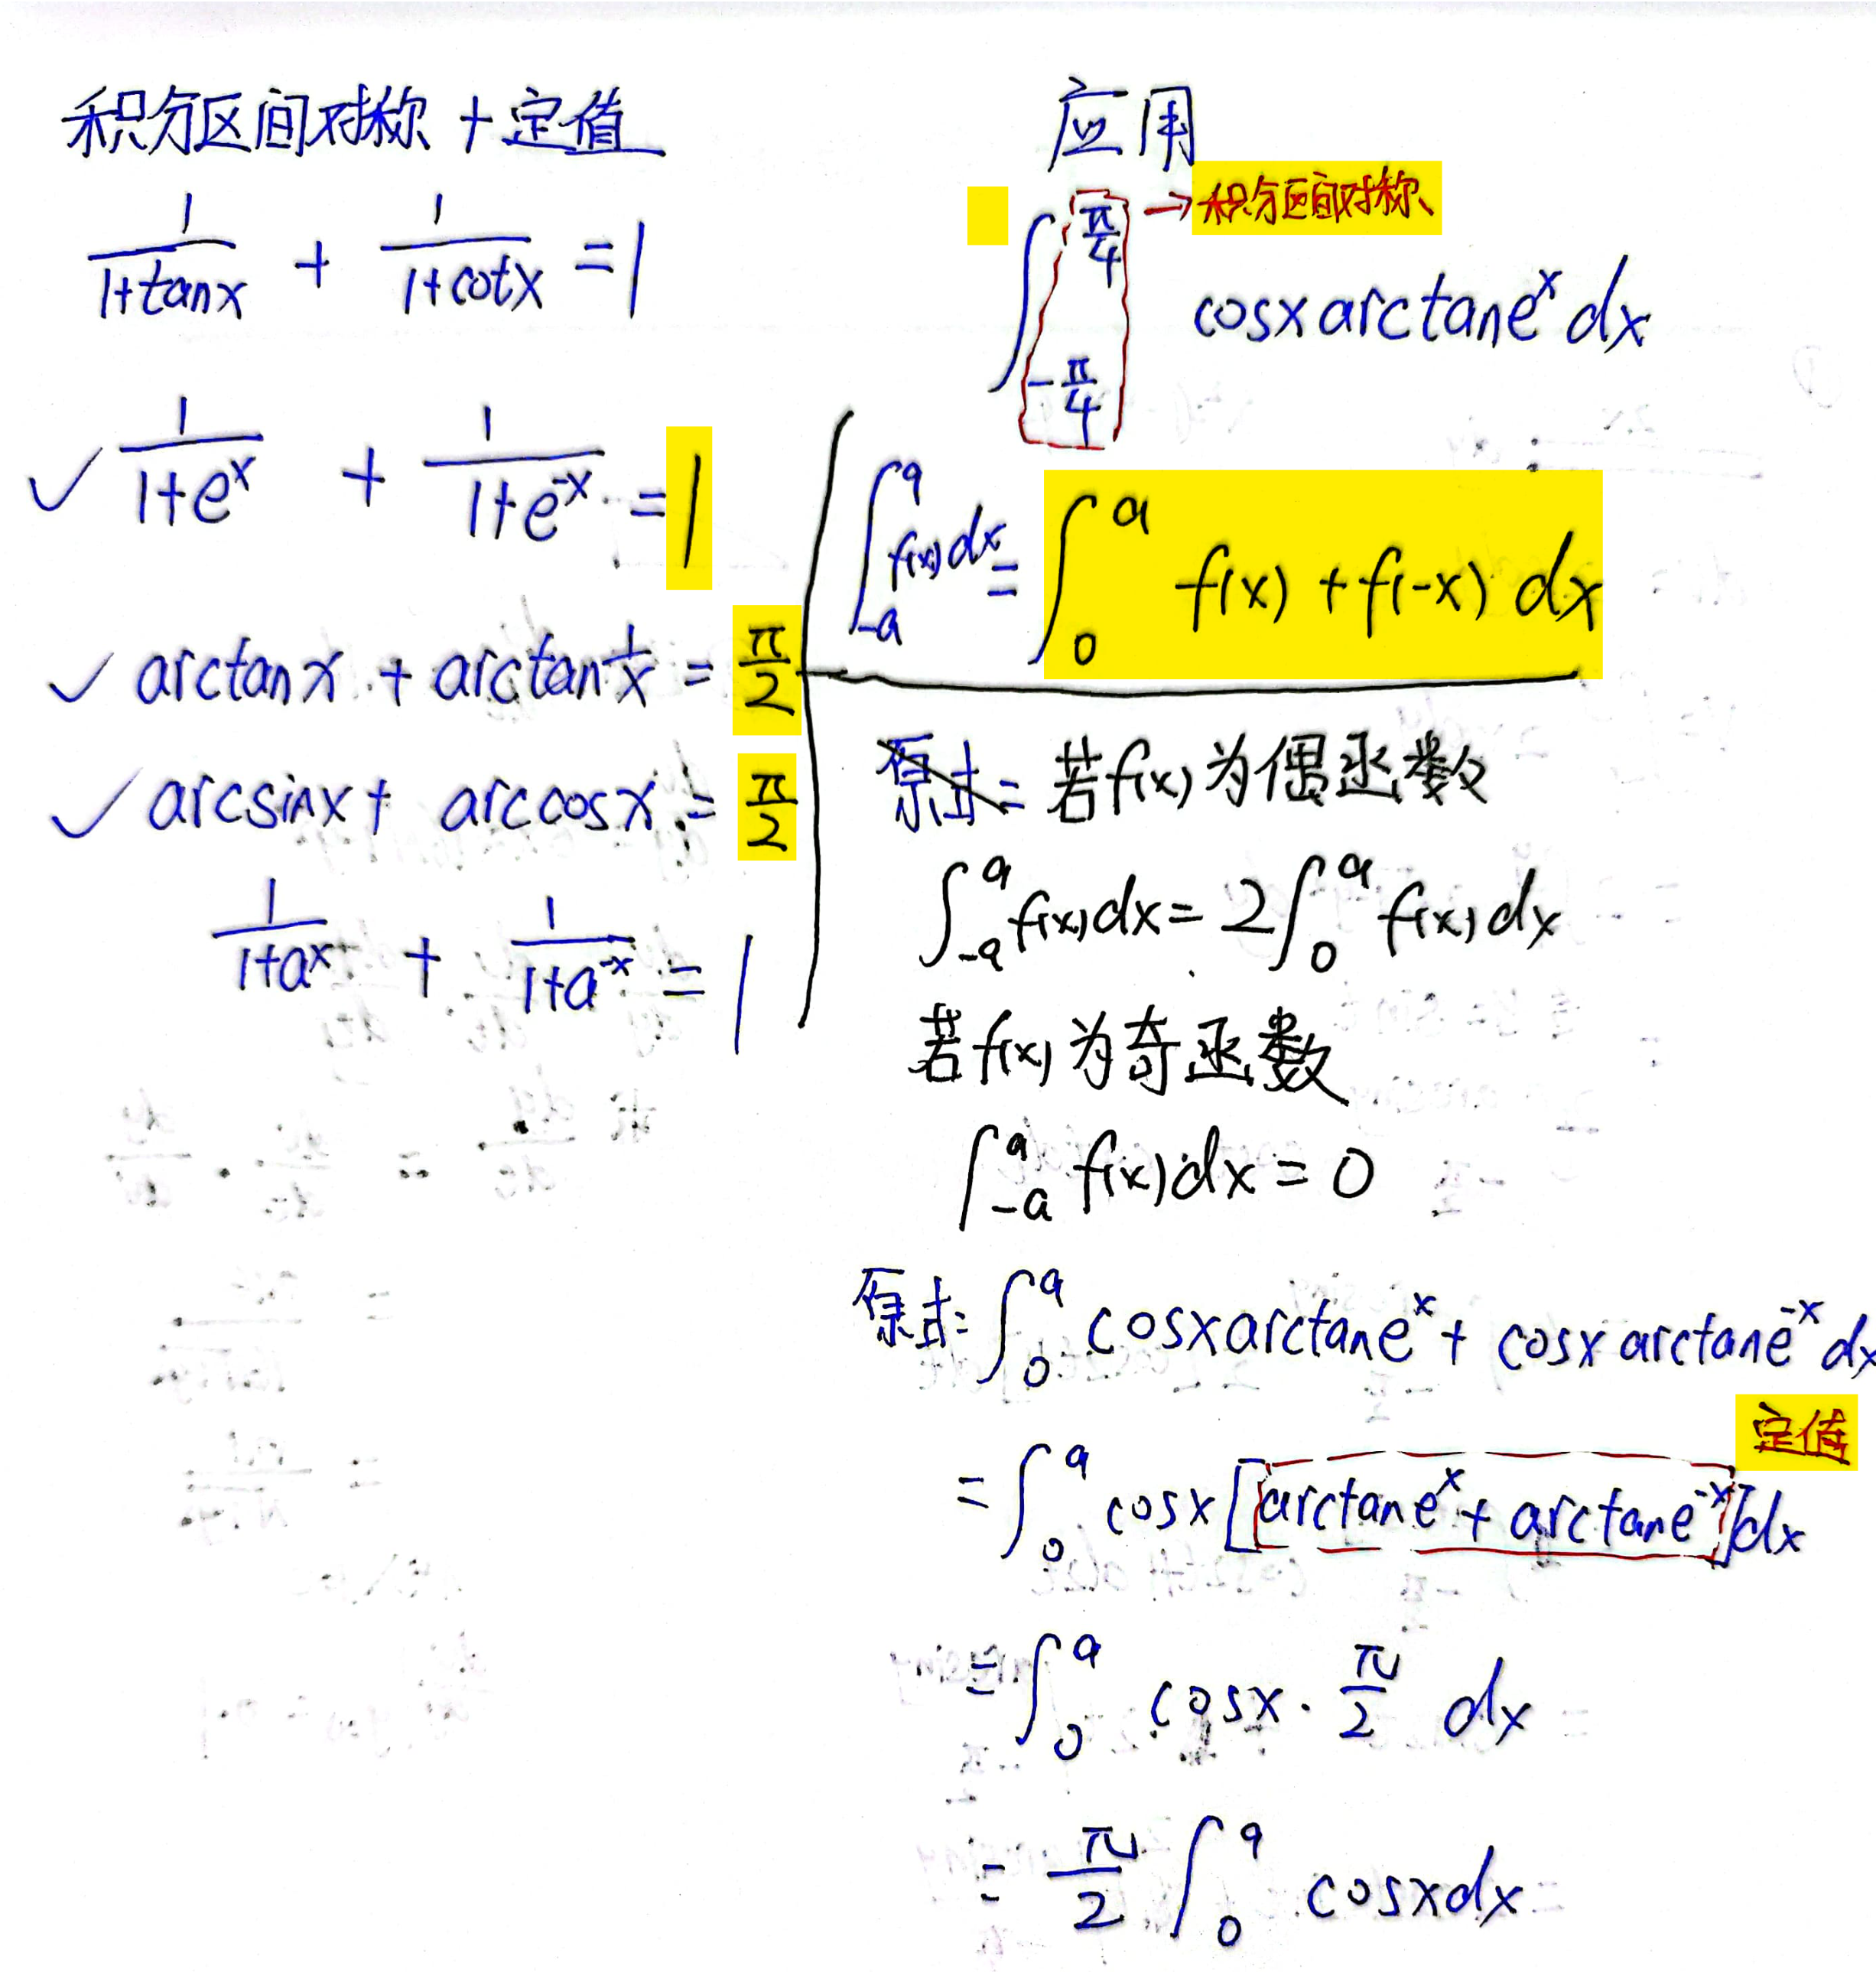 积分区间对称 + 定值
1/(1+tanx) + 1/(1+cotx) = 1
✓ 1/(1+e^x) + 1/(1+e^-x) = 1
✓ arctanx + arctan 1/x = π/2
✓ arcsinx + arccosx = π/2
1/(1+a^x) + 1/(1+a^-x) = 1
应用
→ 积分区间对称
∫_{-π/4}^{π/4} cosx arctane^x dx
∫_{-a}^{a} f(x)dx = ∫_0^a f(x) + f(-x) dx
原式= 若f(x)为偶函数
∫_{-a}^{a} f(x)dx = 2∫_0^a f(x)dx
若f(x)为奇函数
∫_{-a}^{a} f(x)dx = 0
原式= ∫_0^a cosx arctane^x + cosx arctane^-x dx
定值
= ∫_0^a cosx [arctane^x + arctane^-x]dx
= ∫_0^a cosx · π/2 dx
= π/2 ∫_0^a cosxdx